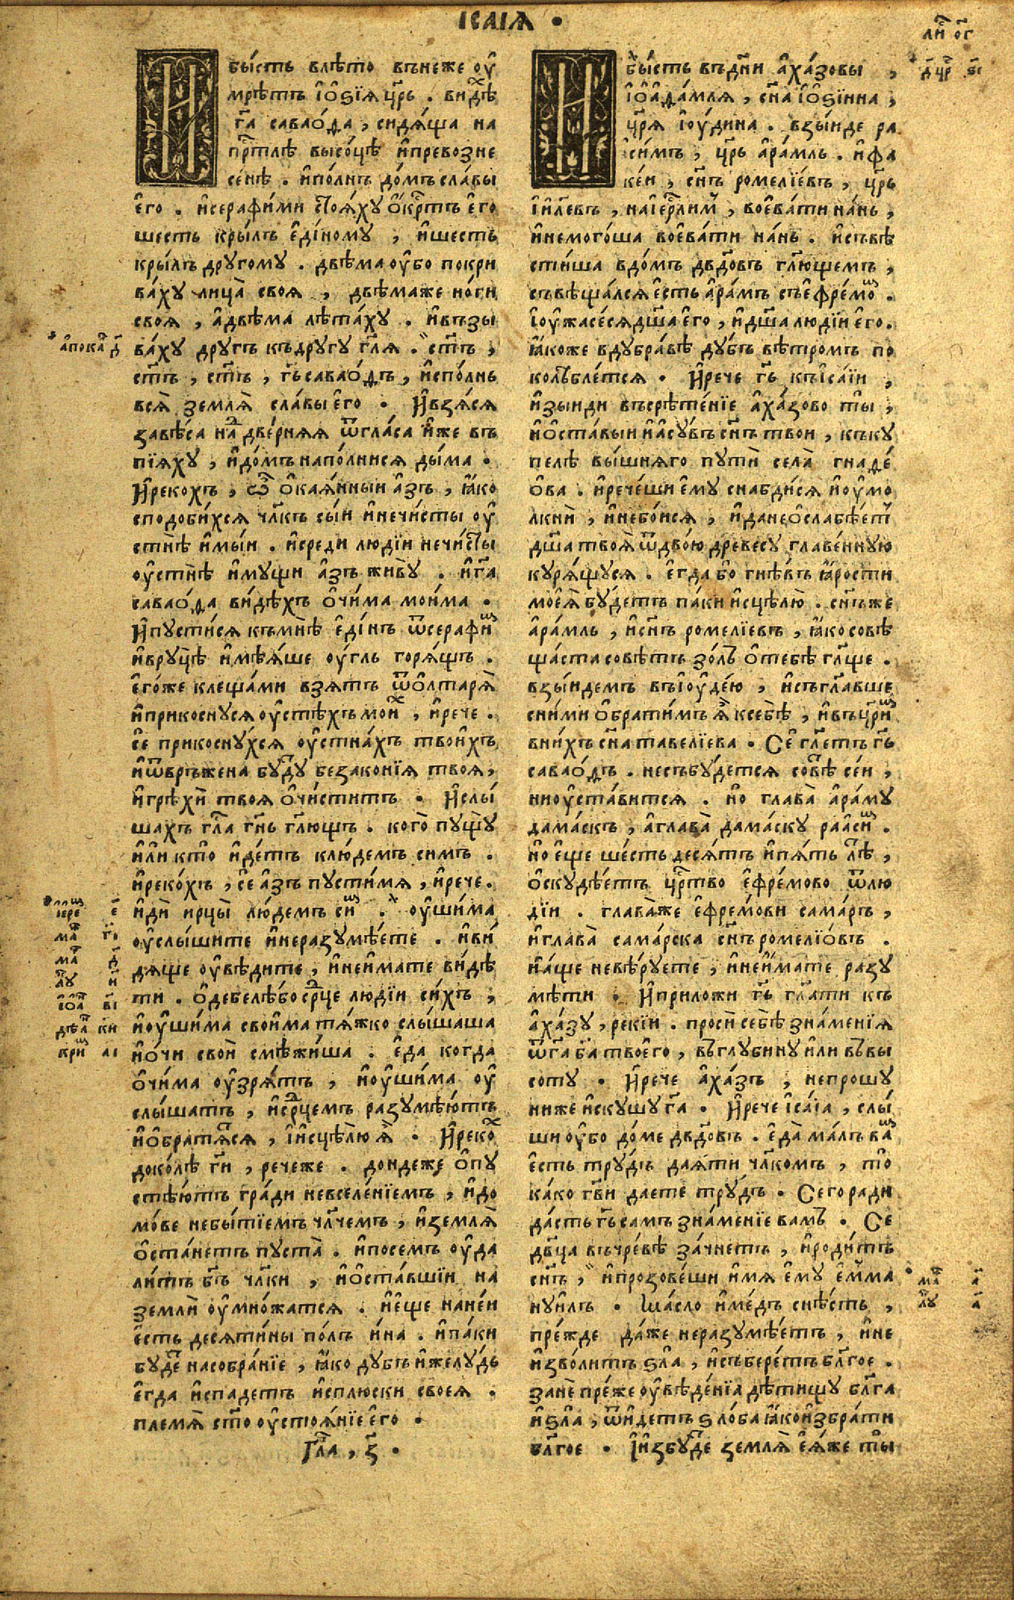 ІСАІѦ
И бы́сть влѣто внеже оу҆
мрѣтъ і҆о҆ѕі́ѧ цр҃ь . ви́дѣ
га҃ саваѻ́ѳа , сидѧ́ща на
прⷭ҇тлѣ высо́цѣ и҆превозне
се́нѣ . и҆по́лнъ до́мъ сла́вы
е҆го̀ . и҆серафи́ми стоѧ́ху о҆́крⷭ҇тъ е҆го
шесть кры́лъ е҆ди́ному , и҆шесть
кры́лъ друго́му . двѣ́ма оу҆́бо покри
ва́ху лица̀ своѧ , двѣ́маже но́ги
своѧ , а҆двѣ́ма лѣта́ху . и҆взы
ва́ху дру́гъ къдру́гу гл҃ѧ . ст҃ъ ,
ст҃ъ , ст҃ъ , гь҃ саваѻ́ѳъ , и҆спо́лнь
всѧ̀ землѧ̀ сла́вы е҆го̀ . И҆взѧ́сѧ
завѣ́са на́дверна́ѧ ѿгла́са и҆́же въ
пїѧ́ху , и҆до́мъ напо́лнисѧ ды́ма .
И҆реко́хъ , ѽ о҆каѧ́нныи а҆́зъ , ꙗ҆́ко
сподоби́хсѧ чл҃къ сы́и и҆нечи́сты оу҆
стнѣ̀ и҆мы́и . и҆средѝ люді́и нечи́сты
оу҆стнѣ̀ и҆му́щи а҆́зъ живу̀ . и҆га҃
саваѻ́ѳа ви́дѣхъ о҆чи́ма мои́ма .
И҆пусти́сѧ къмнѣ̀ е҆ди́нъ ѿсерафи́м
и҆вруцѣ̀ и҆мѣ́ѧше оу҆́гль горѧ́щъ .
е҆го́же клеща́ми взѧ́тъ ѿо҆лтарѧ̀
и҆прикосну́сѧ оу҆стѣ́хъ мои́х , и҆рече .
сѐ прикосну́хсѧ оу҆стна́хъ твои́хъ
и҆ѿвръ́жена бу́дꙋ безако́нїѧ твоѧ ,
и҆грѣхѝ твоѧ̀ о҆чи́ститъ . И҆слы́
шахъ гл҃а гн҃ь гл҃ющъ . кого̀ пущу̀
и҆лѝ кто̀ и҆де́тъ клю́демъ симъ .
и҆реко́хъ , сѐ а҆́зъ пусти́мѧ , и҆рече .
и҆дѝ и҆рцы̀ лю́демъ си́м . оу҆ши́ма
оу҆слы́шите и҆неразумѣ́ете . и҆ви́
дѧще оу҆ви́дите , и҆неи҆́мате ви́дѣ
ти . о҆дебелѣ́бо ср҃це люді́и си́хъ ,
и҆оу҆ши́ма свои́ма тѧ́жко слы́шаша
и҆о҆́чи своѝ смѣжи́ша . е҆да̀ когда
о҆чи́ма оу҆зрѧ́тъ , и҆оу҆ши́ма оу҆
слы́шатъ , и҆ср҃цемъ разумѣ́ютъ
и҆о҆братѧ́тсѧ , и҆и҆сцѣлю̀ ѧ҆̀ . И҆реко́х
доко́лѣ гн҃и , рече́же . до́ндеже о҆пу
стѣ́ютъ гра́ди невселе́нїемъ , и҆до
мо́ве небы́тїемъ чл҃чемъ , и҆землѧ̀
о҆ста́нетъ пуста̀ . и҆посемъ оу҆да
ли́тъ бг҃ъ чл҃ки , и҆о҆ста́вшїи на
землѝ оу҆мно́жатсѧ . и҆е҆щѐ нане́и
е҆́сть десѧти́ны по́лъ и҆на . и҆па́ки
бу́дет насобра́нїе , ꙗ҆́ко ду́бъ и҆желу́дь
е҆гда̀ и҆спаде́тъ и҆сплю́ски своеѧ .
пле́мѧ ст҃о оу҆стоѧ́нїе е҆го̀ .
Гла , з҃ .
И бы́сть вь́дни а҆ха́зовы ,
і҆ѻ҆аѳа́млѧ , сн҃а і҆о҆ѕі́ина ,
цр҃ѧ і҆ю́дина . взы́иде ра
си́мъ , цр҃ь а҆ра́мль . и҆фа
ке́и , сн҃ъ ромелі́евъ , цр҃ь
і҆и҃левъ , наі҆ерⷭ҇ли́мъ , воева́ти на́нь ,
и҆немого́ша воева́ти на́нь . и҆съвѣ
сти́ша вдо́мъ дв҃довъ гл҃ющемъ ,
съвѣща́лсѧ е҆́сть а҆ра́мъ съе҆фре́мом .
і҆оу҆жасе́сѧ дш҃а е҆го̀ , и҆дш҃а люді́и е҆го̀ .
ꙗ҆́коже вдубра́вѣ ду́бъ вѣ́тромъ по
колѣ́блетсѧ . И҆рече гь҃ къи҆са́їи ,
и҆зы́иди въсрѣ́тенїе а҆ха́зово ты̀ ,
и҆о҆ста́выи и҆а҆су́въ сн҃ъ тво́и , къку
пе́лѣ вы́шнѧго путѝ села̀ гнаде́
ѻва . и҆рече́ши е҆му̀ снабди́сѧ и҆оу҆мо
лкнѝ , и҆небо́исѧ , и҆дане о҆слабѣ́ет
дш҃а твоѧ̀ ѿдвою̀ дре́весу главе́нную
курѧ́щусѧ . е҆гда́ бо гнѣ́въ ꙗ҆́рости
моеѧ̀ бу́детъ па́ки и҆сцѣлю̀ . сн҃ъже
а҆ра́мль , и҆сн҃ъ ромелі́евъ , ꙗ҆́ко совѣ
ща́ста совѣ́тъ зо́лъ о҆тебѣ̀ гл҃ще .
взы́идемъ въі҆оу҆де́ю , и҆съгл҃авше
сни́ми о҆брати́мъ ѧ҆̀ ксебѣ̀ , и҆въцр҃и́м
вни́хъ сн҃а тавелі́ева . Сѐ гл҃етъ гь҃
саваѻ́ѳъ . несъбу́детсѧ совѣ́т се́и ,
ниоу҆ста́витсѧ . но̀ глава̀ а҆ра́му
дама́скъ , а҆глава̀ дама́ску раа҆си́м .
но̀ е҆ще ше́сть десѧ́тъ и҆пѧ́ть лѣ́т ,
о҆скудѣ́етъ црⷭ҇тво е҆фре́мово ѿлю
ді́и . глава́же е҆фре́мови сама́ръ ,
и҆глава̀ сама́рска сн҃ъ ромелі́овъ .
и҆а҆́ще невѣ́руете , и҆неи҆́мате разу
мѣ́ти . И҆приложѝ гь҃ гл҃ати къ
а҆ха́зу , реки́и . просѝ себѣ̀ зна́менїѧ
ѿга҃ ба҃ твоего̀ , въ́глубину̀ и҆лѝ въ́вы
соту̀ . И҆рече а҆ха́зъ , непрошу̀
ниже и҆скушу̀ га҃ . И҆рече і҆са́їа , слы́
ши оу҆́бо до́ме дв҃довъ . е҆да̀ ма́лъ ва́м
е҆́сть тру́дъ даѧ́ти чл҃комъ , то̀
ка́ко гв҃и дае́те тру́дъ . Сего̀ ради
да́сть гь҃ са́мъ зна́менїе ва́мъ . Се
дв҃ца въчре́вѣ зачне́тъ , и҆роди́тъ
сн҃ъ , и҆прозове́ши и҆́мѧ е҆му̀ е҆мма
ну́илъ . Ма́сло и҆ме́дъ снѣ́сть ,
пре́жде да́же неразумѣ́етъ , и҆не
и҆зво́литъ ѕла̀ , и҆събере́тъ бл҃гое .
занѐ пре́же оу҆вѣ́денїа дѣ́тищу бл҃га
и҆ѕла̀ , ѿи҆де́тъ ѕло́ба ꙗ҆́ко и҆збра́ти
бл҃гое . И҆и҆збу́дет землѧ̀ е҆ѧ́же ты̀